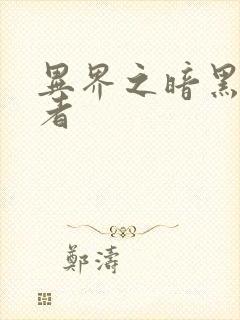 異界之暗黑
者
鄭濤